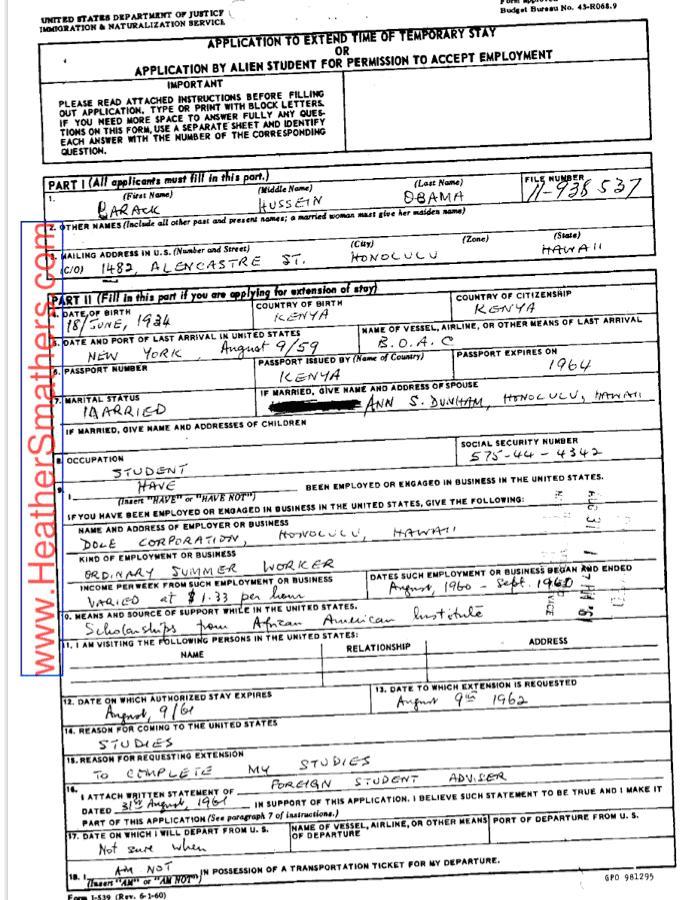 UNITED STATES DEPARTMENT OF JUSTICE
IMMIGRATION & NATURALIZATION SERVICE
Form approved
Budget Bureau No. 43-R068.9
APPLICATION TO EXTEND TIME OF TEMPORARY STAY
OR
APPLICATION BY ALIEN STUDENT FOR PERMISSION TO ACCEPT EMPLOYMENT
IMPORTANT
PLEASE READ ATTACHED INSTRUCTIONS BEFORE FILLING
OUT APPLICATION. TYPE OR PRINT WITH BLOCK LETTERS.
IF YOU NEED MORE SPACE TO ANSWER FULLY ANY QUES-
TIONS ON THIS FORM, USE A SEPARATE SHEET AND IDENTIFY
EACH ANSWER WITH THE NUMBER OF THE CORRESPONDING
QUESTION.
PART I (All applicants must fill in this part.)
1. (First Name) (Middle Name) (Last Name) FILE NUMBER
BARACK HUSSEIN OBAMA 11-938 537
2. OTHER NAMES (Include all other past and present names; a married woman must give her maiden name)
3. MAILING ADDRESS IN U.S. (Number and Street) (City) (Zone) (State)
(C/O) 1482, ALENCASTRE ST. HONOLULU HAWAII
PART II (Fill in this part if you are applying for extension of stay)
4. DATE OF BIRTH COUNTRY OF BIRTH COUNTRY OF CITIZENSHIP
18/JUNE, 1934 KENYA KENYA
5. DATE AND PORT OF LAST ARRIVAL IN UNITED STATES NAME OF VESSEL, AIRLINE, OR OTHER MEANS OF LAST ARRIVAL
NEW YORK, August 9/59 B.O.A.C
6. PASSPORT NUMBER PASSPORT ISSUED BY (Name of Country) PASSPORT EXPIRES ON
KENYA 1964
7. MARITAL STATUS IF MARRIED, GIVE NAME AND ADDRESS OF SPOUSE
MARRIED ANN S. DUNHAM, HONOLULU, HAWAII
IF MARRIED, GIVE NAME AND ADDRESSES OF CHILDREN
8. OCCUPATION SOCIAL SECURITY NUMBER
STUDENT 575-44-4342
9. I HAVE BEEN EMPLOYED OR ENGAGED IN BUSINESS IN THE UNITED STATES.
(Insert "HAVE" or "HAVE NOT")
IF YOU HAVE BEEN EMPLOYED OR ENGAGED IN BUSINESS IN THE UNITED STATES, GIVE THE FOLLOWING:
NAME AND ADDRESS OF EMPLOYER OR BUSINESS
DOLE CORPORATION, HONOLULU, HAWAII
KIND OF EMPLOYMENT OR BUSINESS
ORDINARY SUMMER WORKER
INCOME PER WEEK FROM SUCH EMPLOYMENT OR BUSINESS DATES SUCH EMPLOYMENT OR BUSINESS BEGAN AND ENDED
VARIED at $1.33 per hour August, 1960 - Sept. 1960
10. MEANS AND SOURCE OF SUPPORT WHILE IN THE UNITED STATES.
Scholarships from African American Institute
11. I AM VISITING THE FOLLOWING PERSONS IN THE UNITED STATES:
NAME RELATIONSHIP ADDRESS
12. DATE ON WHICH AUTHORIZED STAY EXPIRES 13. DATE TO WHICH EXTENSION IS REQUESTED
August, 9/61 August 9th 1962
14. REASON FOR COMING TO THE UNITED STATES
STUDIES
15. REASON FOR REQUESTING EXTENSION
TO COMPLETE MY STUDIES
16. I ATTACH WRITTEN STATEMENT OF FOREIGN STUDENT ADVISER
DATED 31st August, 1961 IN SUPPORT OF THIS APPLICATION. I BELIEVE SUCH STATEMENT TO BE TRUE AND I MAKE IT
PART OF THIS APPLICATION (See paragraph 7 of instructions.)
17. DATE ON WHICH I WILL DEPART FROM U. S. NAME OF VESSEL, AIRLINE, OR OTHER MEANS OF DEPARTURE PORT OF DEPARTURE FROM U. S.
Not sure when
18. I AM NOT IN POSSESSION OF A TRANSPORTATION TICKET FOR MY DEPARTURE.
(Insert "AM" or "AM NOT")
Form I-539 (Rev. 6-1-60)
GPO 981295
www.HeatherSmathers.com